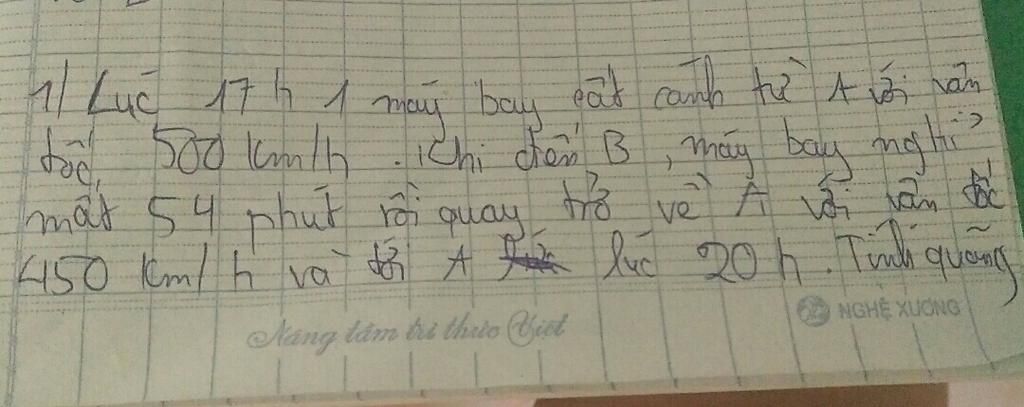 1/ Lúc 17 h 1 máy bay cất cánh từ A với vận
tốc 500 km/h. Khi đến B, máy bay nghỉ
mất 54 phút rồi quay trở về A với vận tốc
450 km/h và tới A lúc 20 h. Tính quãng
Nâng tầm tri thức Việt
NGHỆ XƯƠNG